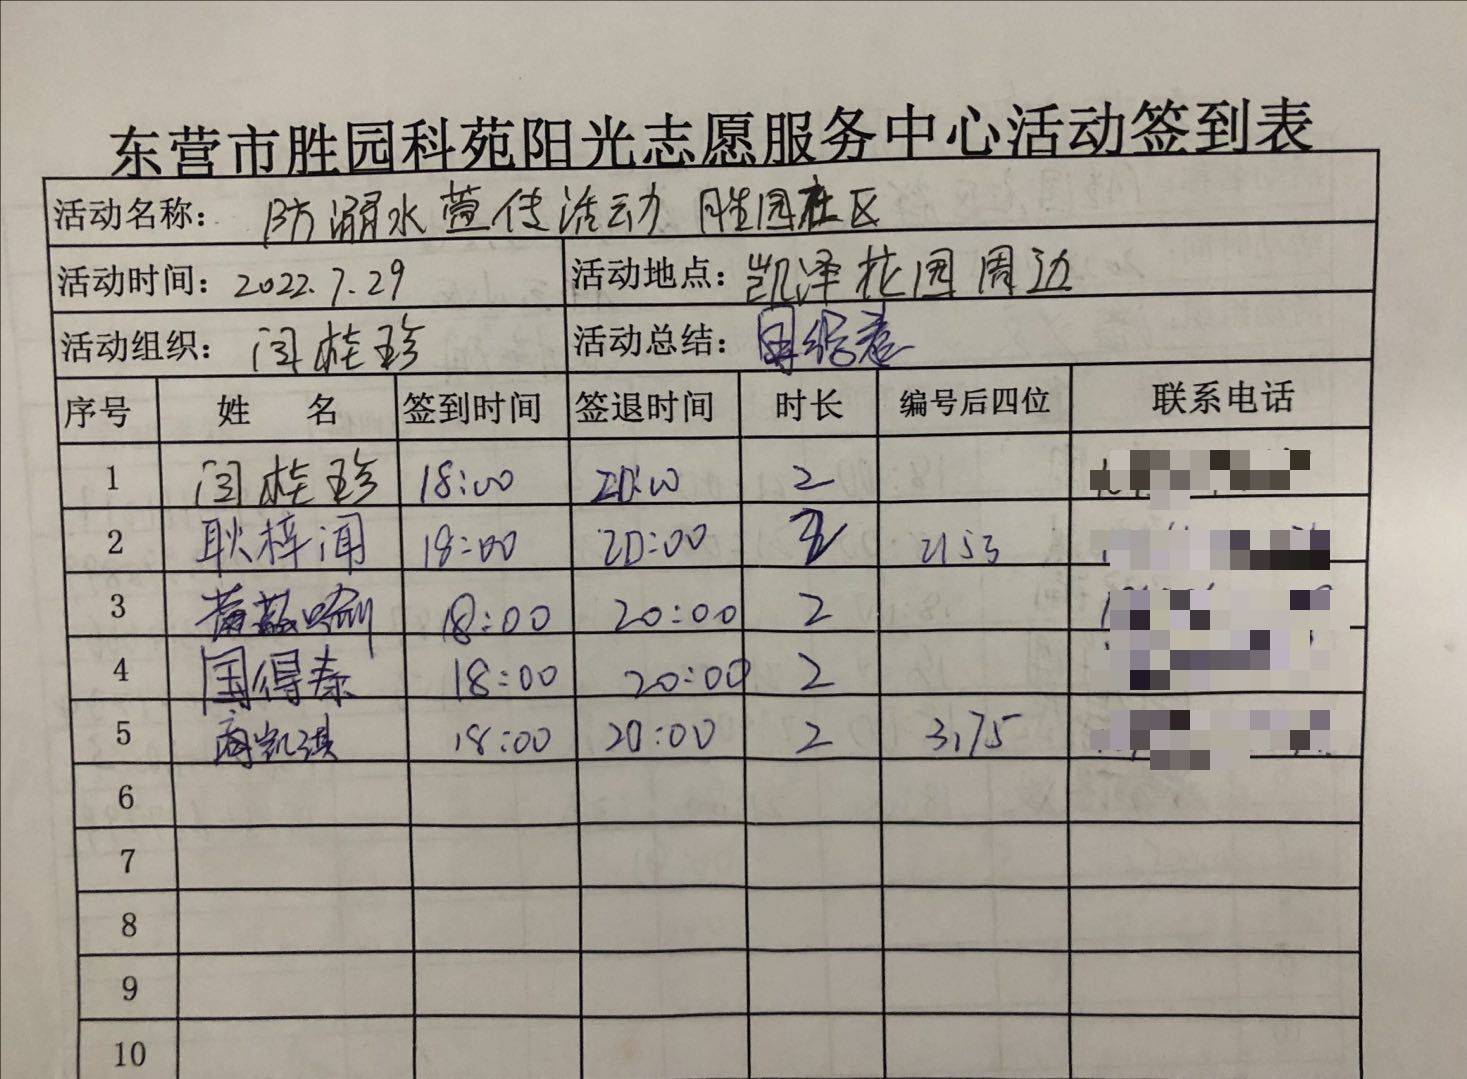 东营市胜园科苑阳光志愿服务中心活动签到表
活动名称： 防溺水宣传活动 胜园社区
活动时间：2022.7.29 活动地点：凯泽花园周边
活动组织： 闫桂珍 活动总结：
序号 姓 名 签到时间 签退时间 时长 编号后四位 联系电话
1 闫桂珍 18:00 20:00 2
2 耿梓闻 18:00 20:00 2 2153
3 18:00 20:00 2
4 国得泰 18:00 20:00 2
5 商凯淇 18:00 20:00 2 3175
6
7
8
9
10